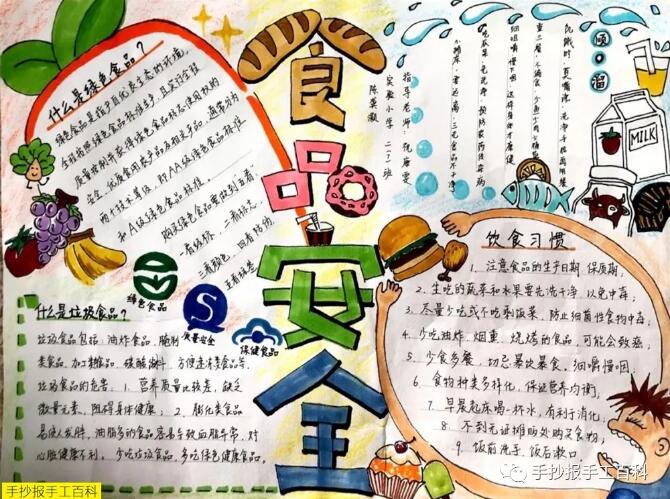 食品安全
什么是绿色食品？
绿色食品是指产自优良生态的环境,
全程按照绿色食品标准生产,且实行全程
质量控制并获得绿色食品标志使用权的
安全、优质食用农产品及相关产品,通常分为
两个技术等级,即AA级绿色食品标准
和A级绿色食品标准
购买绿色食品要做到"五看"
一看级标、二看标志、
三看颜色、四看防伪
五看标签
绿色食品
质量安全
保健食品
什么是垃圾食品？
垃圾食品包括,油炸食品,腌制
类食品,加工糖食品,碳酸饮料,方便速冻类食品等
垃圾食品的危害：1、营养质量比较差,缺乏
微量元素,阻碍身体健康；2、膨化类食品
易使人发胖,油脂多的食品容易导致血脂异常,对
心脏健康不利。少吃垃圾食品,多吃绿色健康食品。
陈昊淑
实验小学 二(一)班
指导老师：
顺口溜
饮食习惯
1、注意食品的生产日期,保质期；
2、生吃的蔬菜和水果要先洗干净,以免中毒；
3、尽量少吃或不吃剩饭菜、防止细菌性食物中毒；
4、少吃油炸、烟熏、烧烤的食品,可能会致癌；
5、少食多餐,切忌暴饮暴食,细嚼慢咽；
6、食物种类多样化,保证营养均衡；
7、早晨起床喝一杯水,有利于消化；
8、不到无证摊贩处购买食物；
9、饭前洗手,饭后漱口。
MILK
手抄报手工百科
手抄报手工百科